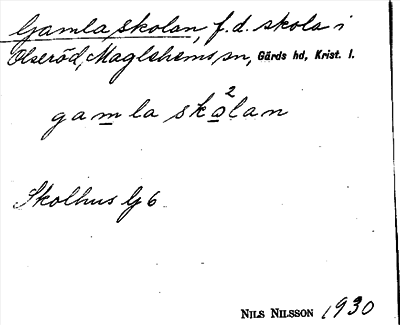 Gamla skolan, f.d. skola i
Olseröd, Maglehems sn, Gärds hd, Krist. l.
gamla sko2lan
Skolhus lj 6
NILS NILSSON 1930